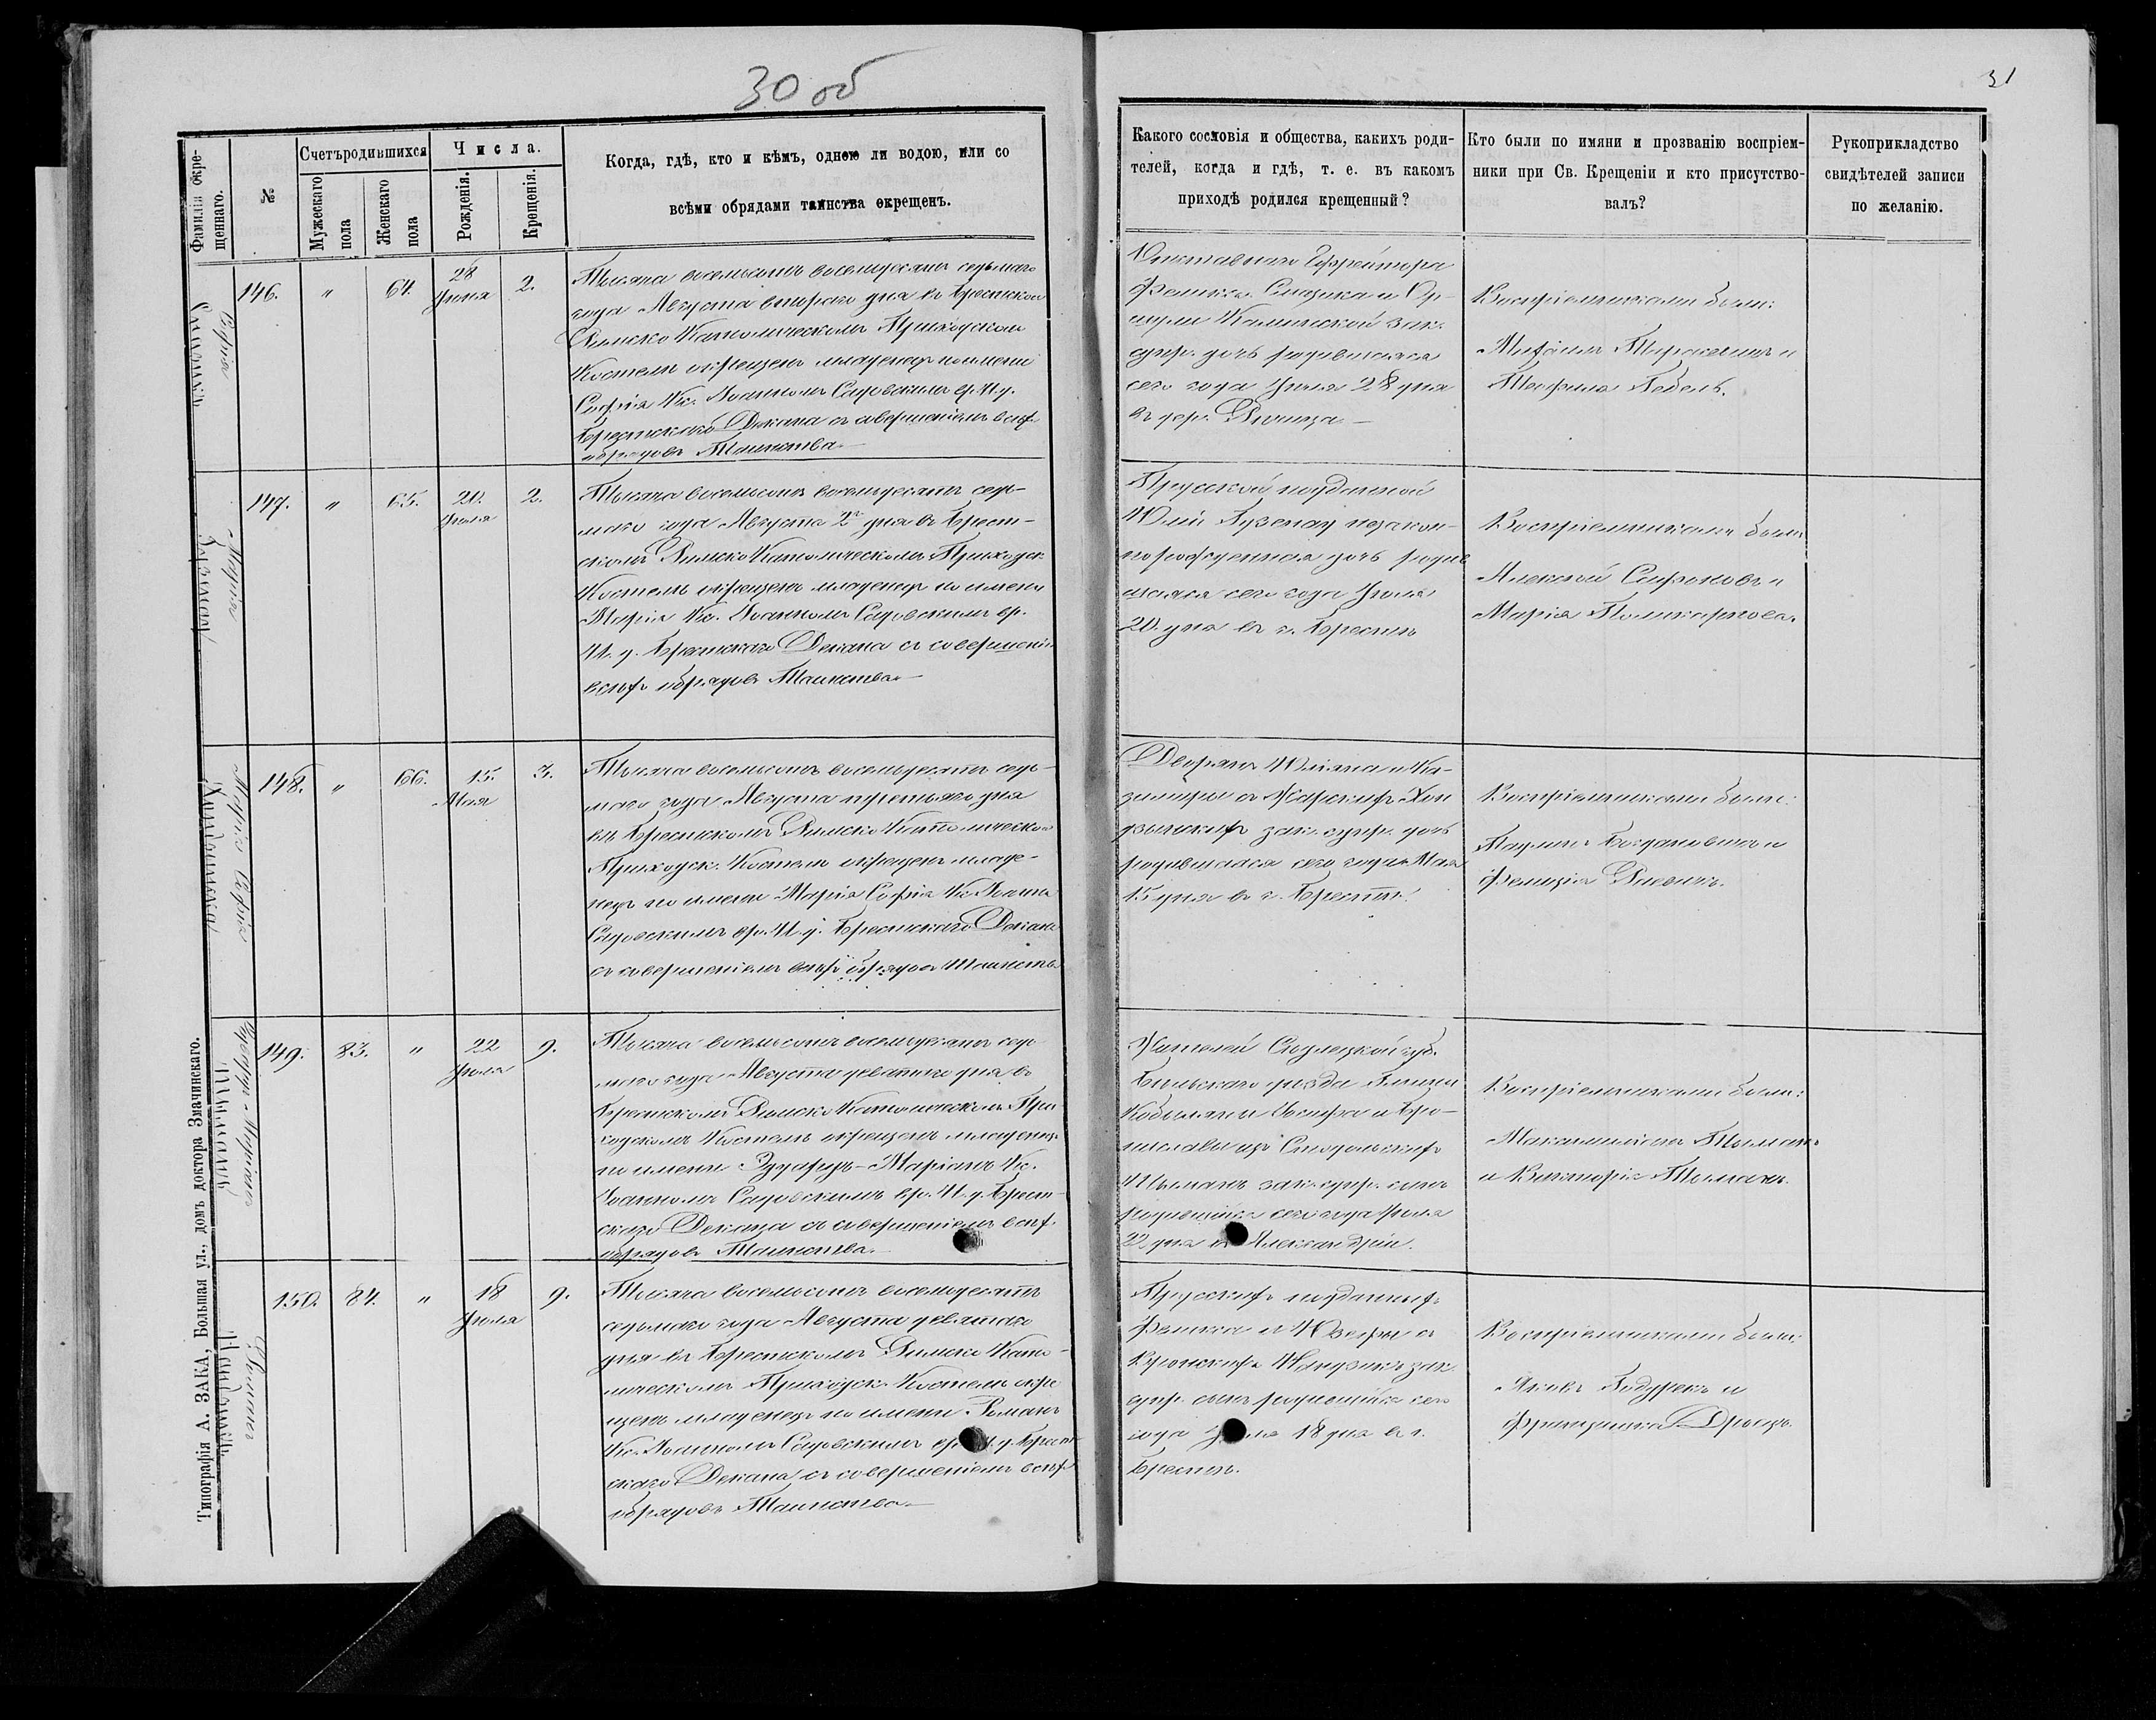 30 об
31
Фамилія окре-
щеннаго.
№
Счетъ родившихся
Мужескаго
пола
Женскаго
пола
Числа.
Рожденія.
Крещенія.
Когда, гдѣ, кто и кѣмъ, одною ли водою, или со
всѣми обрядами таинства окрещенъ.
Какого сословія и общества, какихъ роди-
телей, когда и гдѣ, т. е. въ какомъ
приходѣ родился крещенный?
Кто были по имяни и прозванію воспріем-
ники при Св. Крещеніи и кто присутство-
валъ?
Рукоприкладство
свидѣтелей записи
по желанію.
Софія
146.
"
64.
28
Іюля
2.
Тысяча восемьсотъ восемьдесятъ седьмаго
года Августа втораго дня въ Брестском
Римско Католическомъ Приходском
Костелѣ окрещенъ младенецъ по имени
Софія Кс. Іоанномъ Садовскимъ вр. И. д.
Брестскаго Декана съ совершеніемъ всѣхъ
обрядовъ Таинства
Отставнаго Ефрейтора
зак.
супр. дочь родившаяся
сего года Іюля 28 дня
въ дер.
Воспріемниками были:
Михаилъ и
Теофила
Марія
147.
"
65.
20.
Іюля
2.
Тысяча восемьсотъ восемьдесятъ седь-
маго года Августа 2го дня въ Брест-
скомъ Римско Католическомъ Приходск.
Костелѣ окрещенъ младенецъ по имени
Марія Кс. Іоанномъ Садовскимъ вр.
И. д. Брестскаго Декана съ совершеніем
всѣхъ обрядовъ Таинства
Прусской подданной
Юліи незакон-
норожденная дочь родив
шаяся сего года Іюля
20 дня въ г. Брестѣ
Воспріемниками были
Алексѣй и
Марія Поликарпова.
Марія Софія
148.
"
66.
15.
Мая
3.
Тысяча восемьсотъ восемьдесятъ седь-
маго года Августа третьяго дня
въ Брестскомъ Римско Католическом
Приходск. Костелѣ окрещенъ младе-
нецъ по имени Марія Софія Кс. Іоанном
Садовскимъ вр. И. д. Брестскаго Декана
съ совершеніемъ всѣхъ обрядовъ Таинства
Дворянъ Юліана и Ка-
зимиры съ
зак. супр. дочь
родившаяся сего года Мая
15 дня въ г. Брестѣ.
Воспріемниками были:
Богдановичъ и
Фелиція
Эдуардъ Маріанъ
149.
83.
"
22
Іюля
9.
Тысяча восемьсотъ восемьдесятъ седь
маго года Августа девятаго дня въ
Брестскомъ Римско Католическомъ При
ходскомъ Костелѣ окрещенъ младенецъ
по имени Эдуардъ-Маріанъ Кс.
Іоанномъ Садовскимъ вр. И. д. Брест-
скаго Декана съ совершеніемъ всѣхъ
обрядовъ Таинства.
Жителей Сѣдлецкой губ.
Бѣльскаго уѣзда Гмины
Кобыляны Іосифа и Бро-
ниславы изъ
зак. супр. сынъ
родившійся сего года Іюля
22 дня въ Александріи.
Воспріемниками были:
Максимиліанъ
и Викторія
Романъ
150.
84.
"
18
Іюля
9.
Тысяча восемьсотъ восемьдесятъ
седьмаго года Августа девятаго
дня въ Брестскомъ Римско Като-
лическомъ Приходск. Костелѣ окре
щенъ младенецъ по имени Романъ
Кс. Іоанномъ Садовскимъ вр. И. д. Брест
скаго Декана съ совершеніемъ всѣхъ
обрядовъ Таинства
Прусскихъ подданныхъ
Феликса и Юзефы съ
зак.
супр. сынъ родившійся сего
года Іюля 18 дня въ г.
Брестѣ.
Воспріемниками были:
Яковъ и
Францишка
Типографія А. ЗАКА, Большая ул., домъ доктора Змачинскаго.